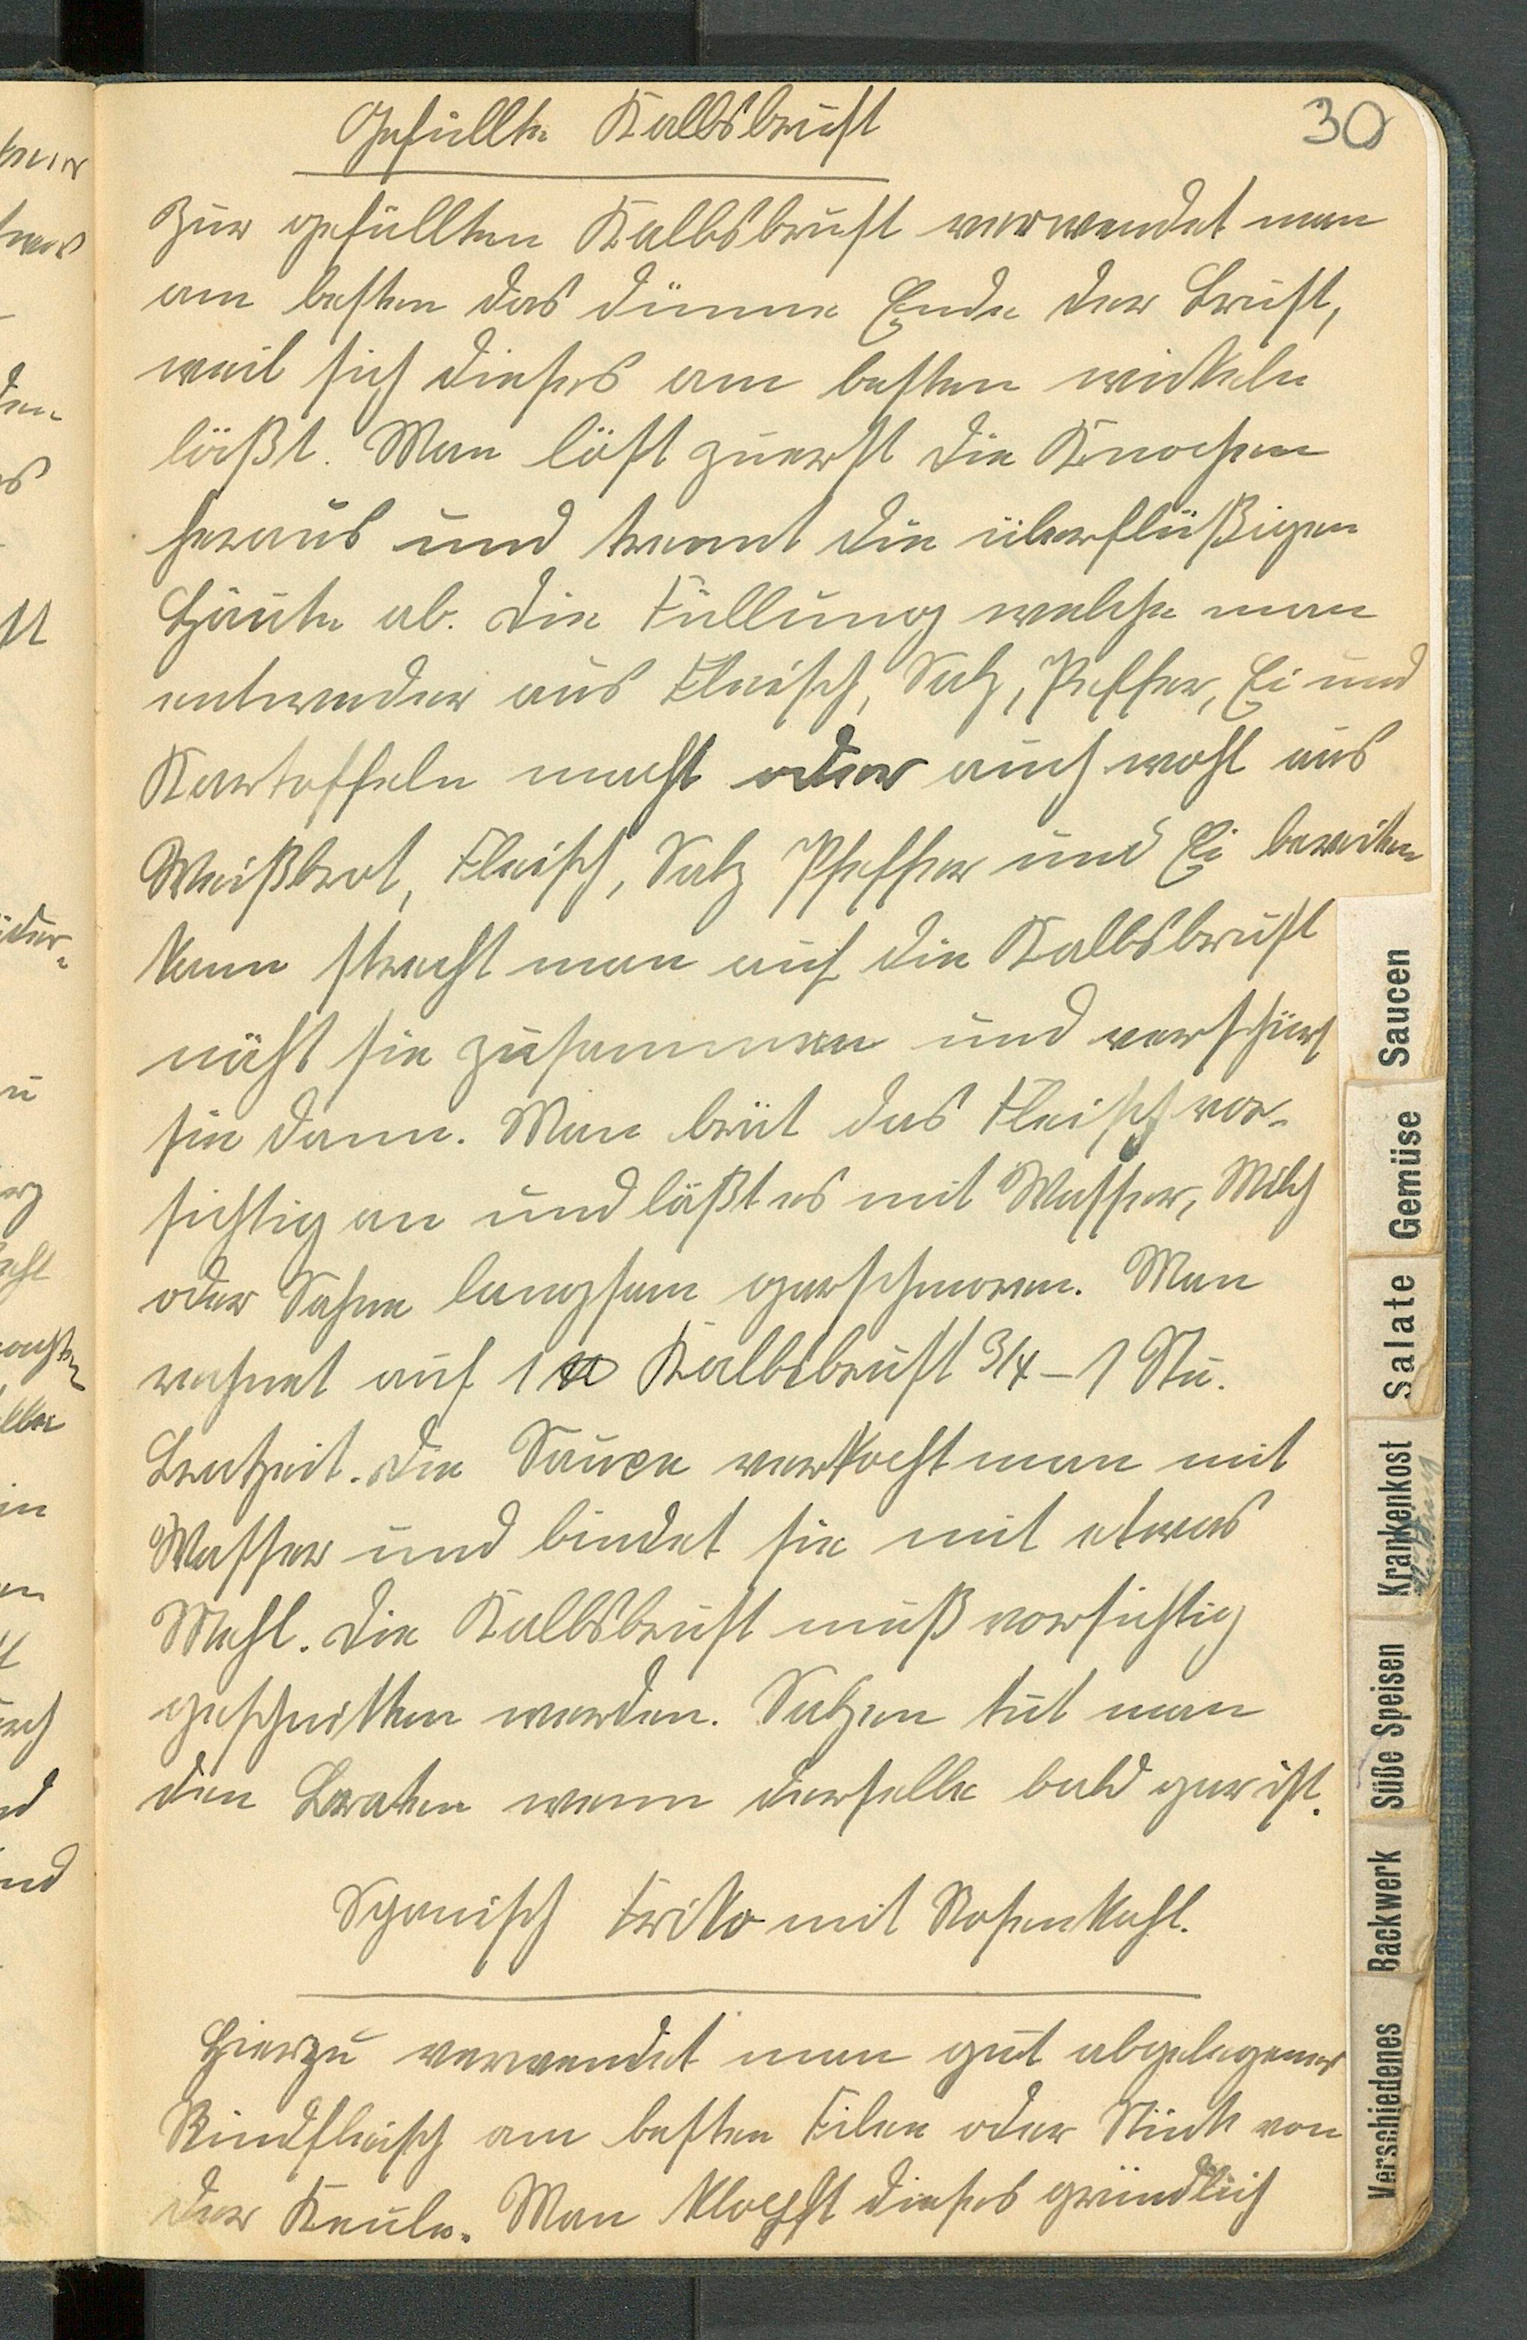 30
Gefüllte Kalbsbrust
Zur gefüllten Kalbsbrust verwendet man
am besten das dünne Ende der Brust,
weil sich dieses am besten wickeln
läßt. Man löst zuerst die Knochen
heraus und trennt die überflüßigen
Häute ab. Die Füllung welche man
entweder aus Fleisch, Salz, Pfeffer, Ei und
Kartoffeln macht oder auch wohl aus
Weißbrot, Fleisch, Salz Pfeffer und Ei bereiten
kann streicht man auf die Kalbsbrust
näht sie zusammen und verschnürt
sie dann. Man brät das Fleisch vor-
sichtig an und läßt es mit Wasser, Milch
oder Sahne langsam garschmoren. Man
rechnet auf 1 ℔ Kalbsbrust 3/4 - 1 Stu.
Bratzeit. Die Sauce verkocht man mit
Wasser und bindet sie mit etwas
Mehl. Die Kalbsbrust muß vorsichtig
geschnitten werden. Salzen tut man
den Braten wenn derselbe bald gar ist.
Spanisch Friko mit Rosenkohl.
Hierzu verwendet man gut abgelagenes
Rindfleisch am besten Filee oder Stück von
der Keule. Man klopft dieses gründlich
Saucen
Gemüse
Salate
Krankenkost
Süße Speisen
Backwerk
Verschiedenes